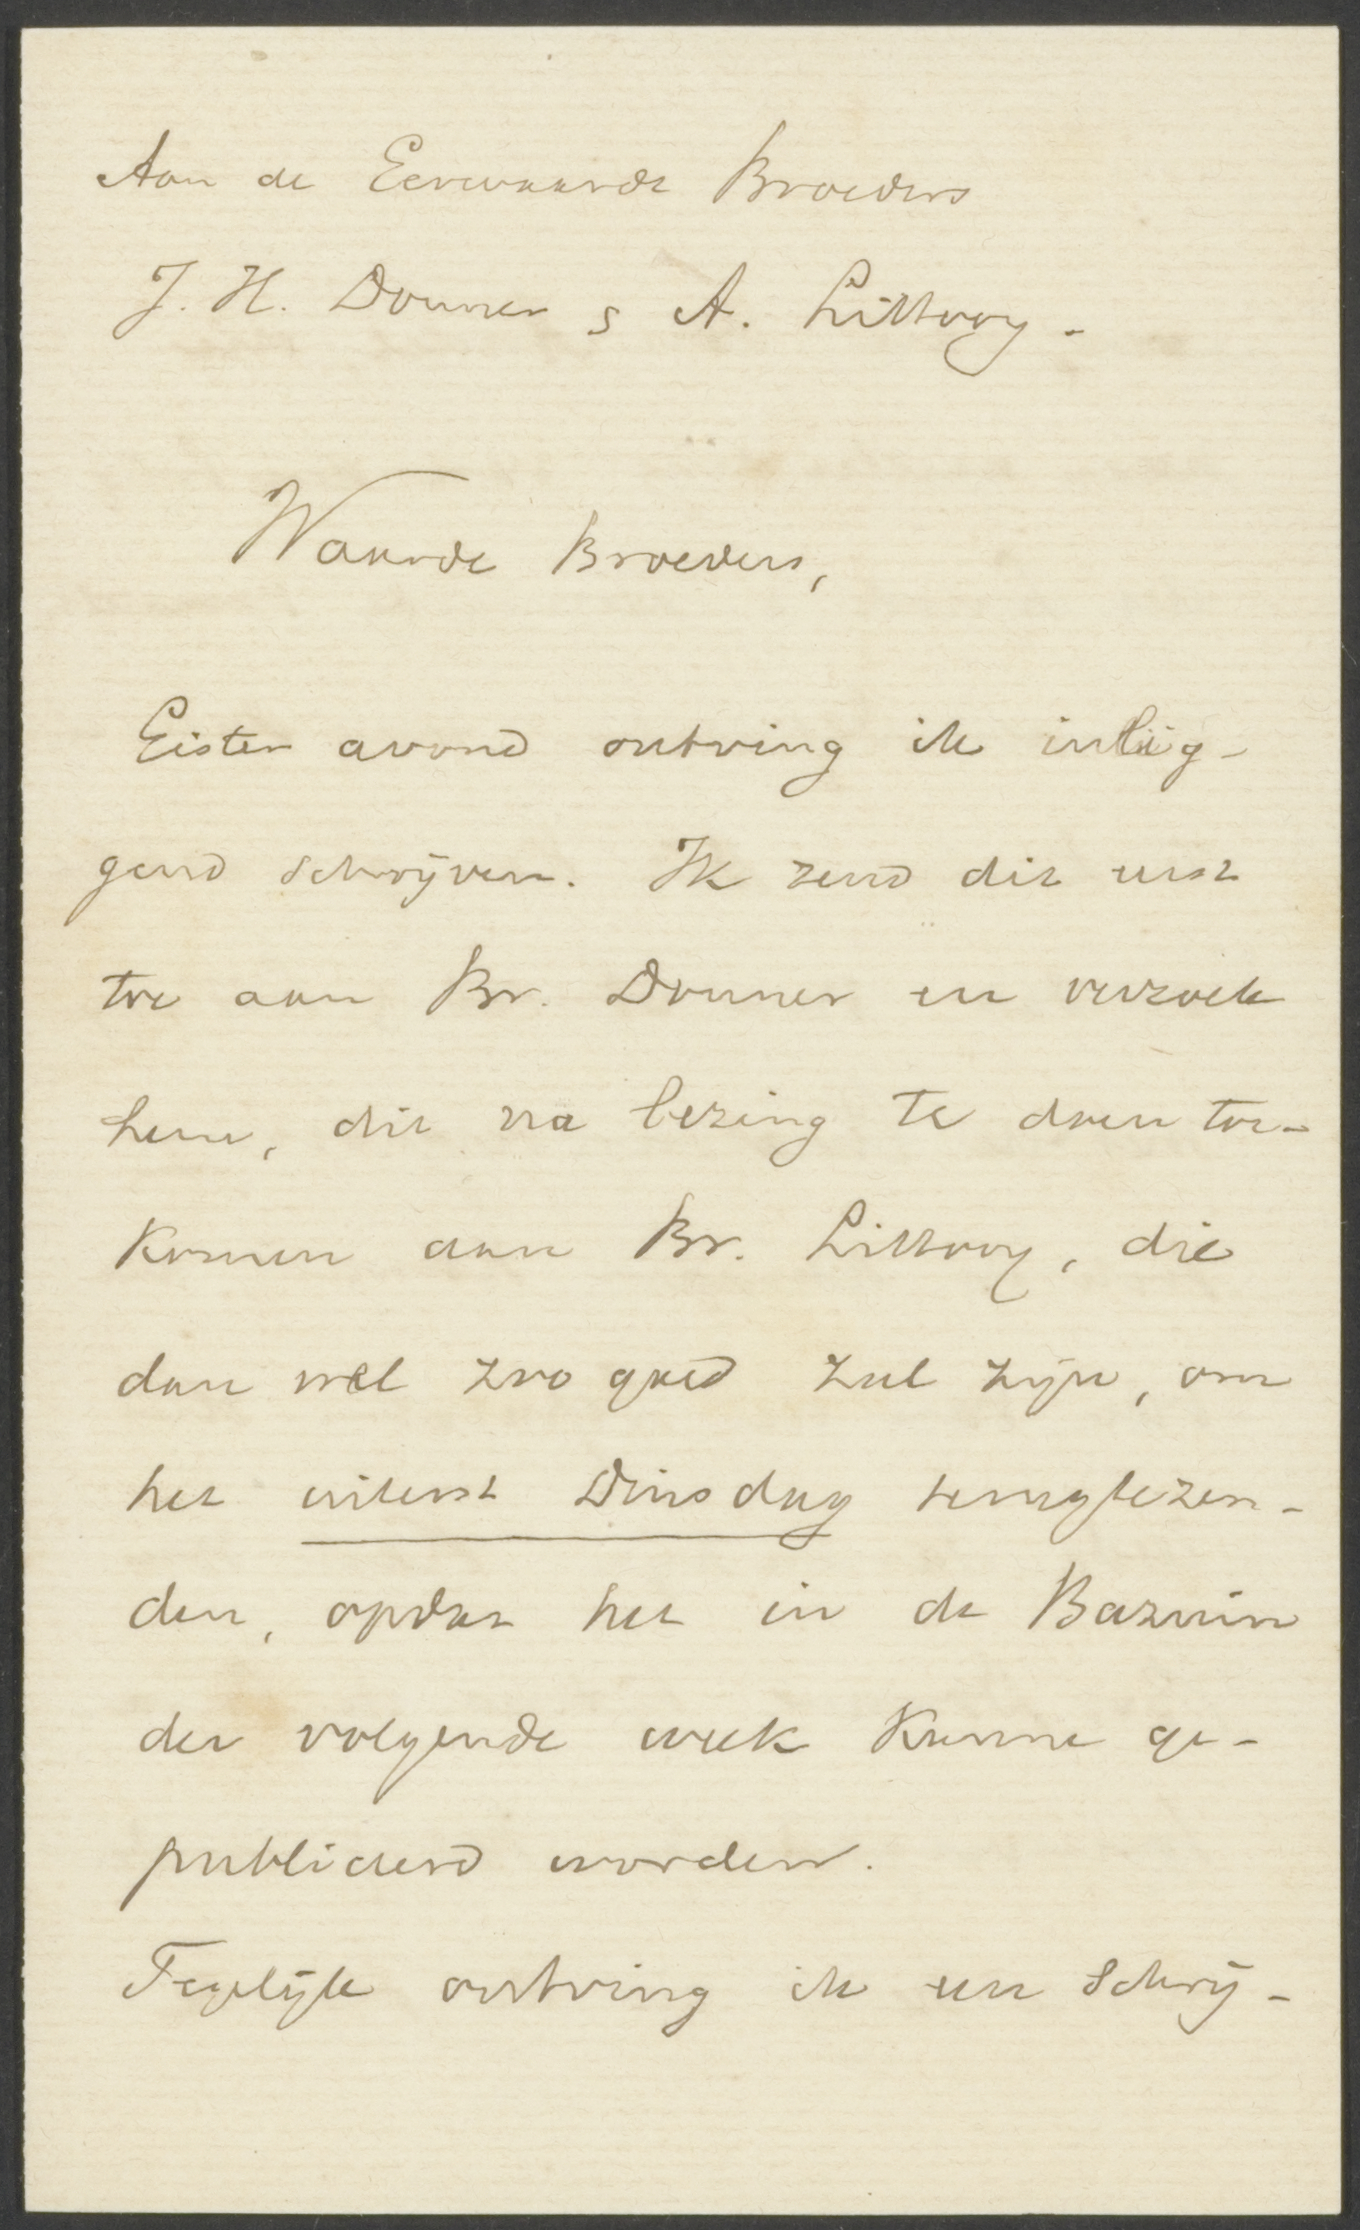 Aan de Eerwaarde Broeders
J. H. Donner & A. Littooy.
Waarde Broeders,
Gister avond ontving ik inlig-
gend schrijven. Ik zend dit eerst
toe aan Br. Donner en verzoek
hem, dit na lezing te doen toe-
komen aan Br. Littooy, die
dan wel zoo goed zal zijn, om
het uiterst Dinsdag terugtezen-
den, opdat het in de Bazuin
der volgende week kunne ge-
publiceerd worden.
Tegelijk ontving ik een schrij-